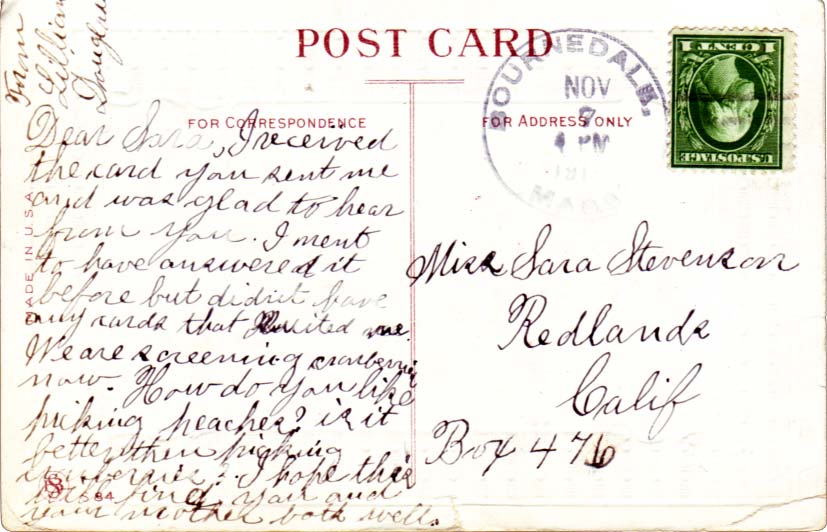 POST CARD
FOR CORRESPONDENCE
FOR ADDRESS ONLY
MADE IN U.S.A.
From
Lillian
Dear Sara, I received
the card you sent me
and was glad to hear
from you. I ment
to have answered it
before but didn't have
any cards that suited me.
We are screening cranberries
now. How do you like
picking peaches? is it
better then picking
cranberries? I hope this
will find you and
your mother both well.
BOURNEDALE,
NOV
7
4 PM
191
MASS
1 CENT 1
U.S. POSTAGE
Miss Sara Stevenson
Redlands
Calif
Box 476